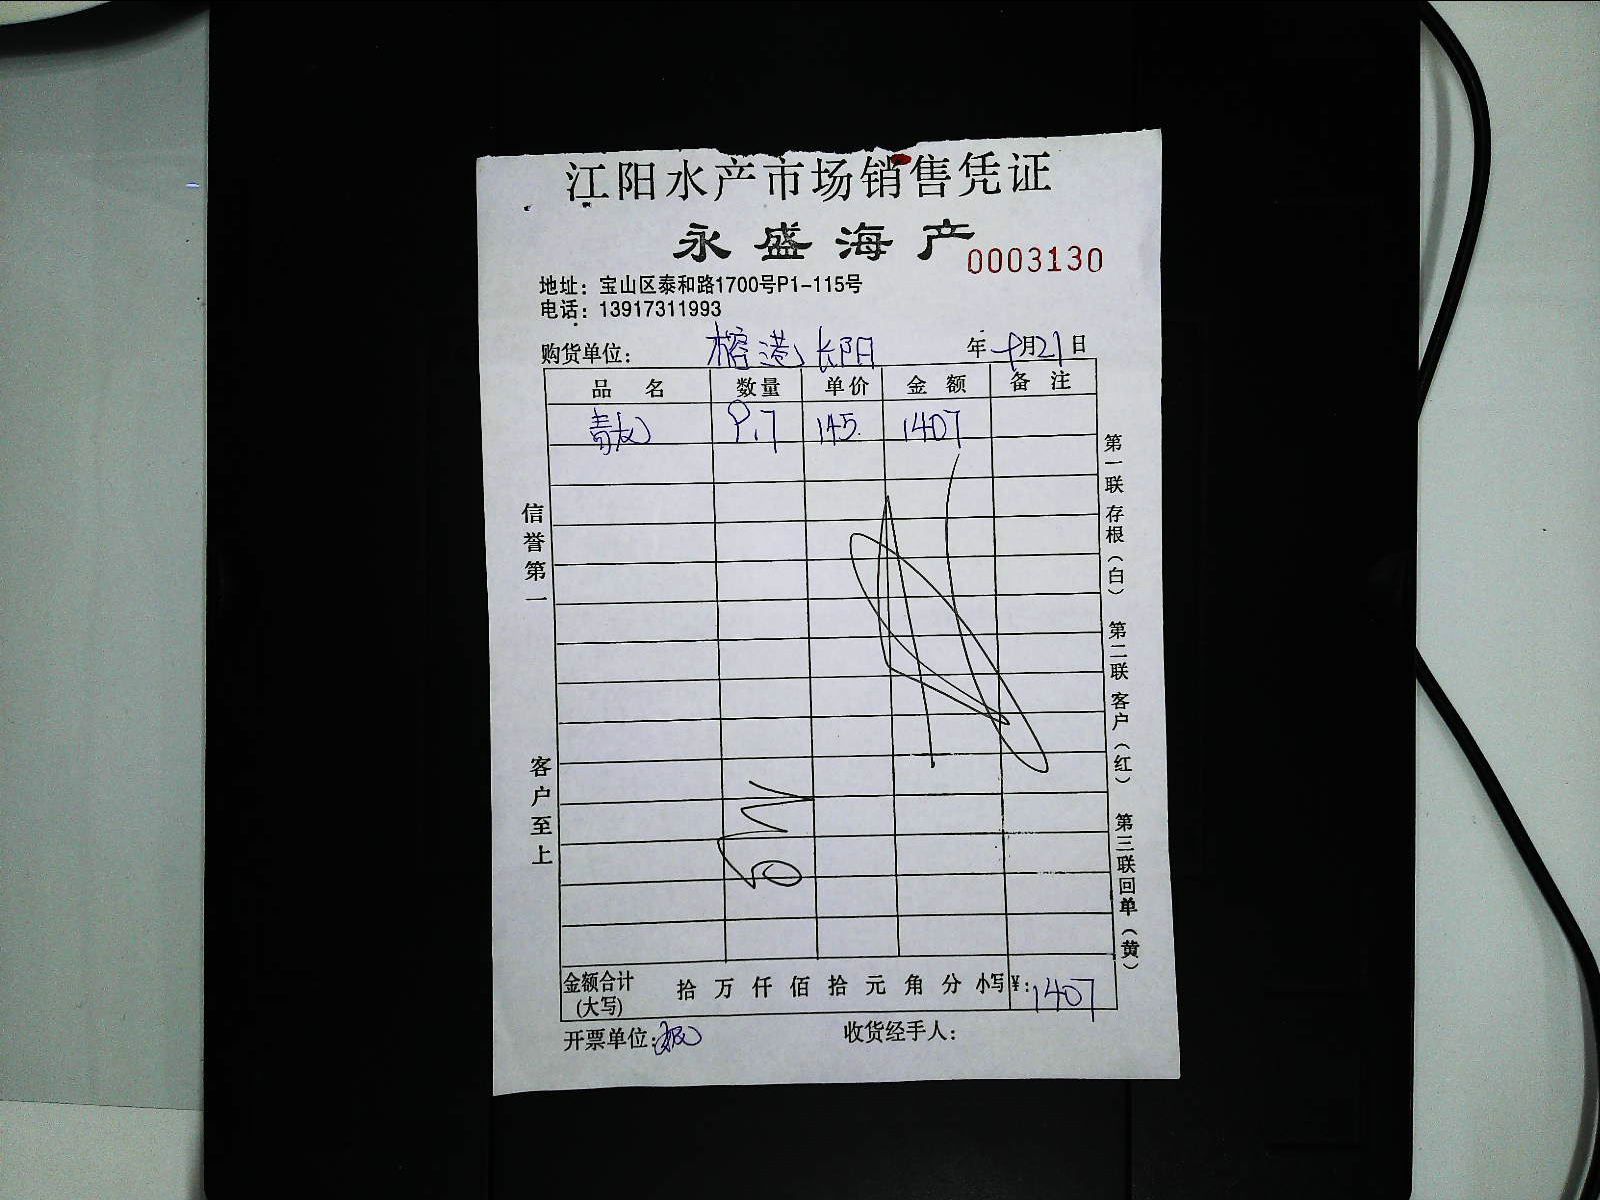 江阳水产市场销售凭证
永盛海产
0003130
地址：宝山区泰和路1700号P1-115号
电话：13917311993
购货单位：榕港长阳 年9月21日
品名 数量 单价 金额 备注
青龙 9.7 145. 1407
信誉第一
客户至上
第一联 存根（白） 第二联 客户（红） 第三联 回单（黄）
金额合计(大写) 拾 万 仟 佰 拾 元 角 分 小写¥：1407
开票单位： 收货经手人：